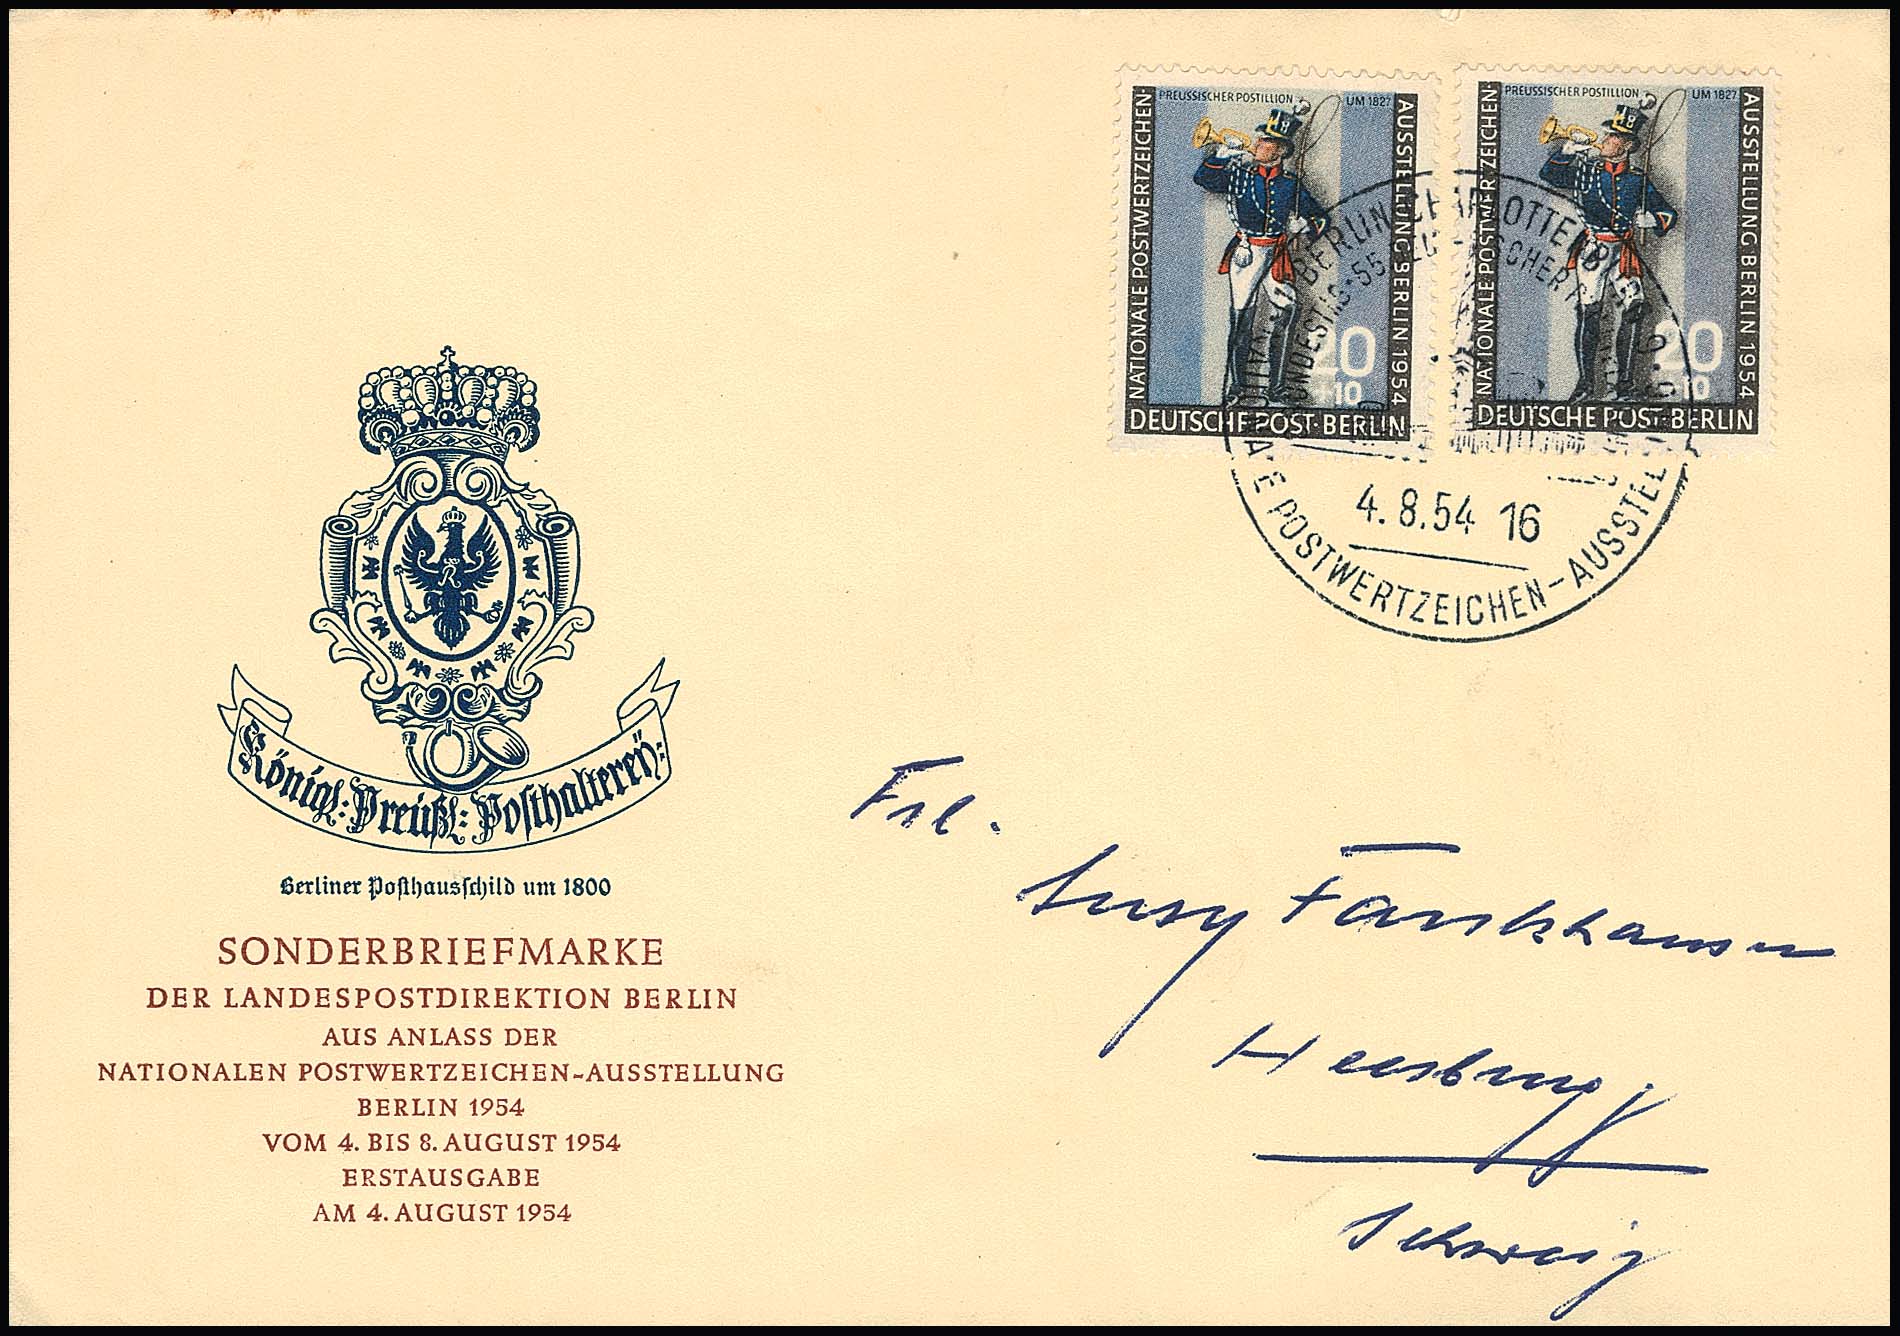 PREUSSISCHER POSTILLION UM 1827
NATIONALE POSTWERTZEICHEN-
AUSSTELLUNG BERLIN 1954
20
+10
DEUTSCHE POST·BERLIN
PREUSSISCHER POSTILLION UM 1827
NATIONALE POSTWERTZEICHEN-
AUSSTELLUNG BERLIN 1954
20
+10
DEUTSCHE POST·BERLIN
BERLIN-CHARLOTTENBURG 9
4.8.54 16
POSTWERTZEICHEN-AUSSTELL
R
Königl: Preüßl: Posthaltereÿ:
Berliner Posthausschild um 1800
SONDERBRIEFMARKE
DER LANDESPOSTDIREKTION BERLIN
AUS ANLASS DER
NATIONALEN POSTWERTZEICHEN-AUSSTELLUNG
BERLIN 1954
VOM 4. BIS 8. AUGUST 1954
ERSTAUSGABE
AM 4. AUGUST 1954
Frl.
Susy Fankhauser
Heerbrugg
Schweiz